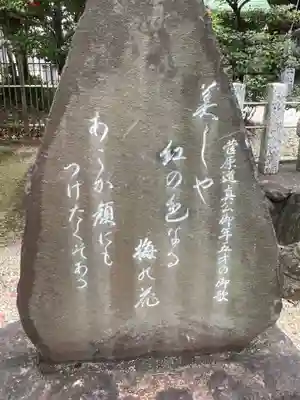 菅原道真公御年五才の御歌
美しや
紅の色なる
梅の花
あこか顔にも
つけたくぞある